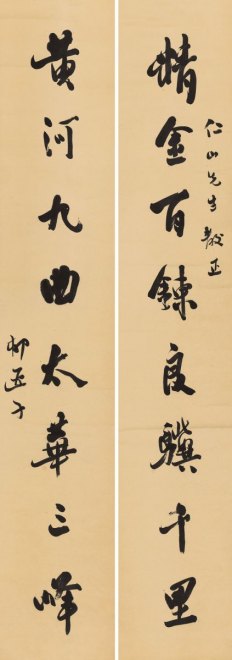 精金百鍊良驥千里
仁山先生教正
黄河九曲太華三峰
柳亞子